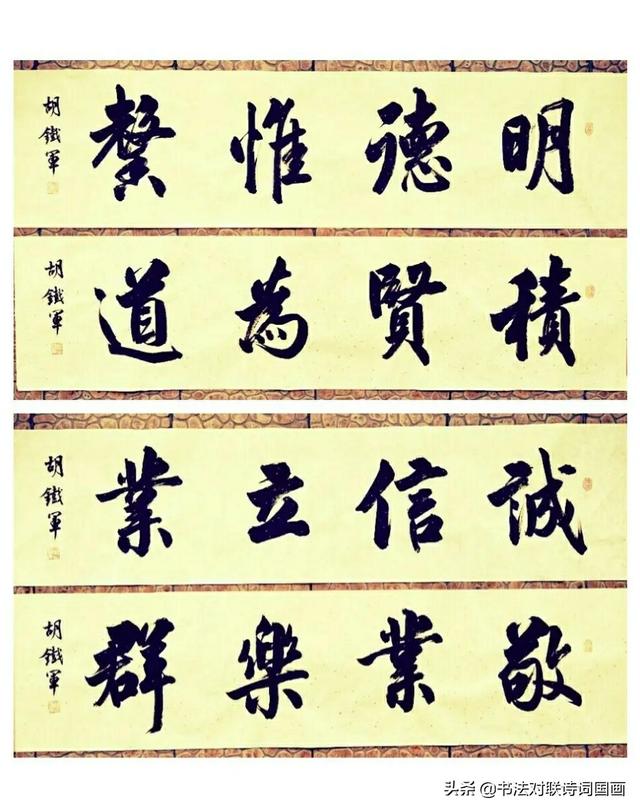 明德惟馨
胡鐵軍
積賢為道
胡鐵軍
誠信立業
胡鐵軍
敬業樂群
胡鐵軍
头条 @书法对联诗词国画